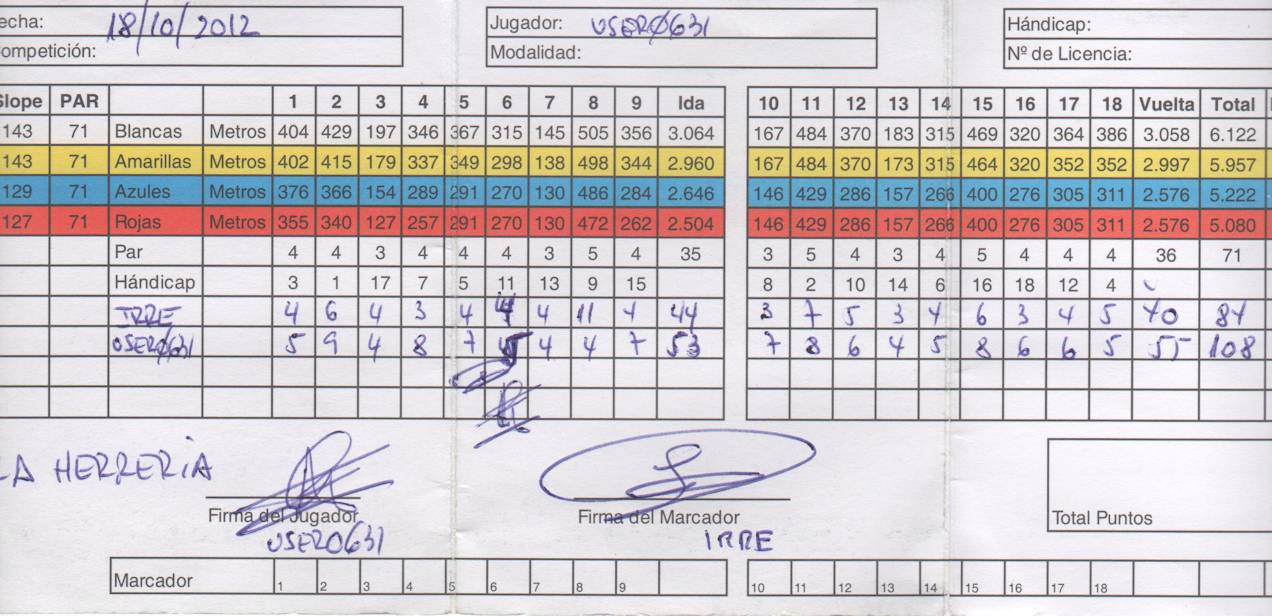 echa: 18/10/2012 Jugador: USER0631 Hándicap:
ompetición: Modalidad: Nº de Licencia:
Slope PAR 1 2 3 4 5 6 7 8 9 Ida 10 11 12 13 14 15 16 17 18 Vuelta Total
143 71 Blancas Metros 404 429 197 346 367 315 145 505 356 3.064 167 484 370 183 315 469 320 364 386 3.058 6.122
143 71 Amarillas Metros 402 415 179 337 349 298 138 498 344 2.960 167 484 370 173 315 464 320 352 352 2.997 5.957
129 71 Azules Metros 376 366 154 289 291 270 130 486 284 2.646 146 429 286 157 266 400 276 305 311 2.576 5.222
127 71 Rojas Metros 355 340 127 257 291 270 130 472 262 2.504 146 429 286 157 266 400 276 305 311 2.576 5.080
Par 4 4 3 4 4 4 3 5 4 35 3 5 4 3 4 5 4 4 4 36 71
Hándicap 3 1 17 7 5 11 13 9 15 8 2 10 14 6 16 18 12 4
IRRE 4 6 4 3 4 4 4 11 4 44 3 7 5 3 4 6 3 4 5 40 84
USER0631 5 9 4 8 7 5 4 4 7 53 7 8 6 4 5 8 6 6 5 55 108
LA HERRERIA
Firma del Jugador Firma del Marcador
USER0631 IRRE
Total Puntos
Marcador 1 2 3 4 5 6 7 8 9 10 11 12 13 14 15 16 17 18